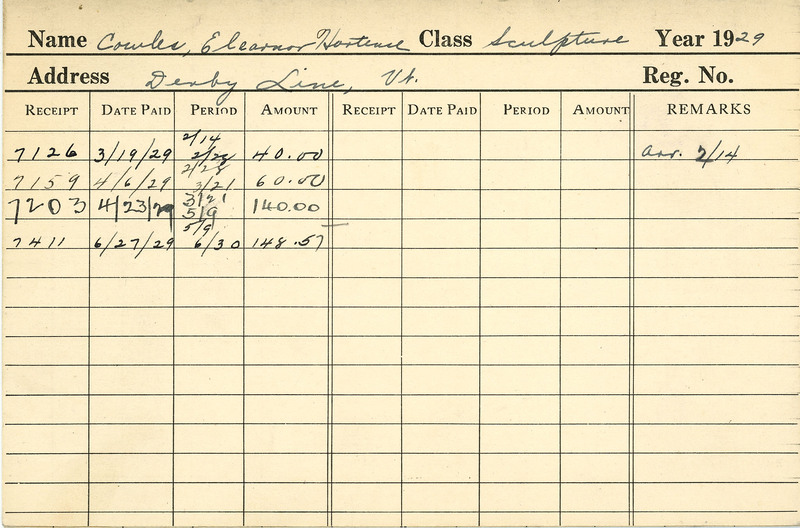 Name Cowles, Eleanor Hortense Class Sculpture Year 1929
Address Derby Line, Vt. Reg. No.
RECEIPT DATE PAID PERIOD AMOUNT RECEIPT DATE PAID PERIOD AMOUNT REMARKS
2/14
7126 3/19/29 2/28 40.00 arr. 2/14
2/28
7159 4/6/29 3/21 60.00
3/21
7203 4/23/29 5/9 140.00
5/9
7411 6/27/29 6/30 148.57